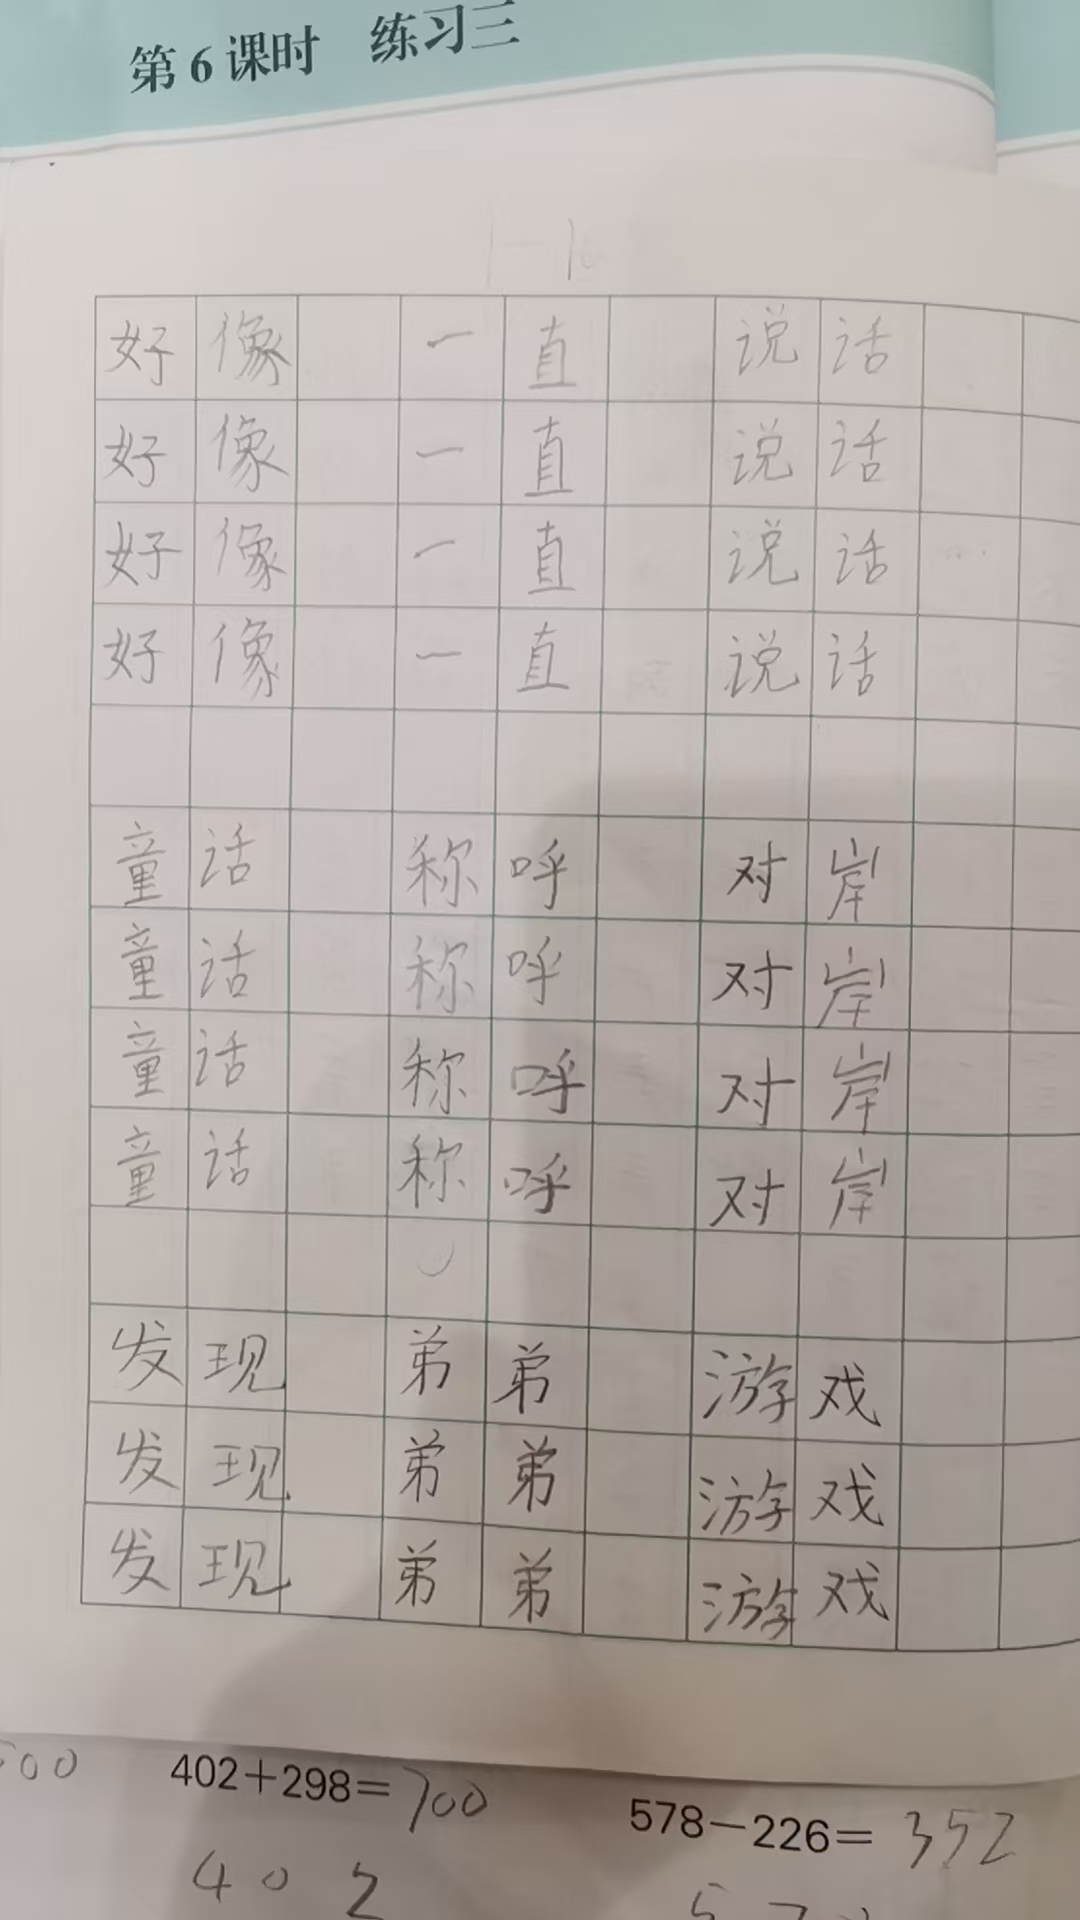 第6课时 练习三
好像 一直 说话
好像 一直 说话
好像 一直 说话
好像 一直 说话
童话 称呼 对岸
童话 称呼 对岸
童话 称呼 对岸
童话 称呼 对岸
发现 弟弟 游戏
发现 弟弟 游戏
发现 弟弟 游戏
402+298=700
578-226=352
402